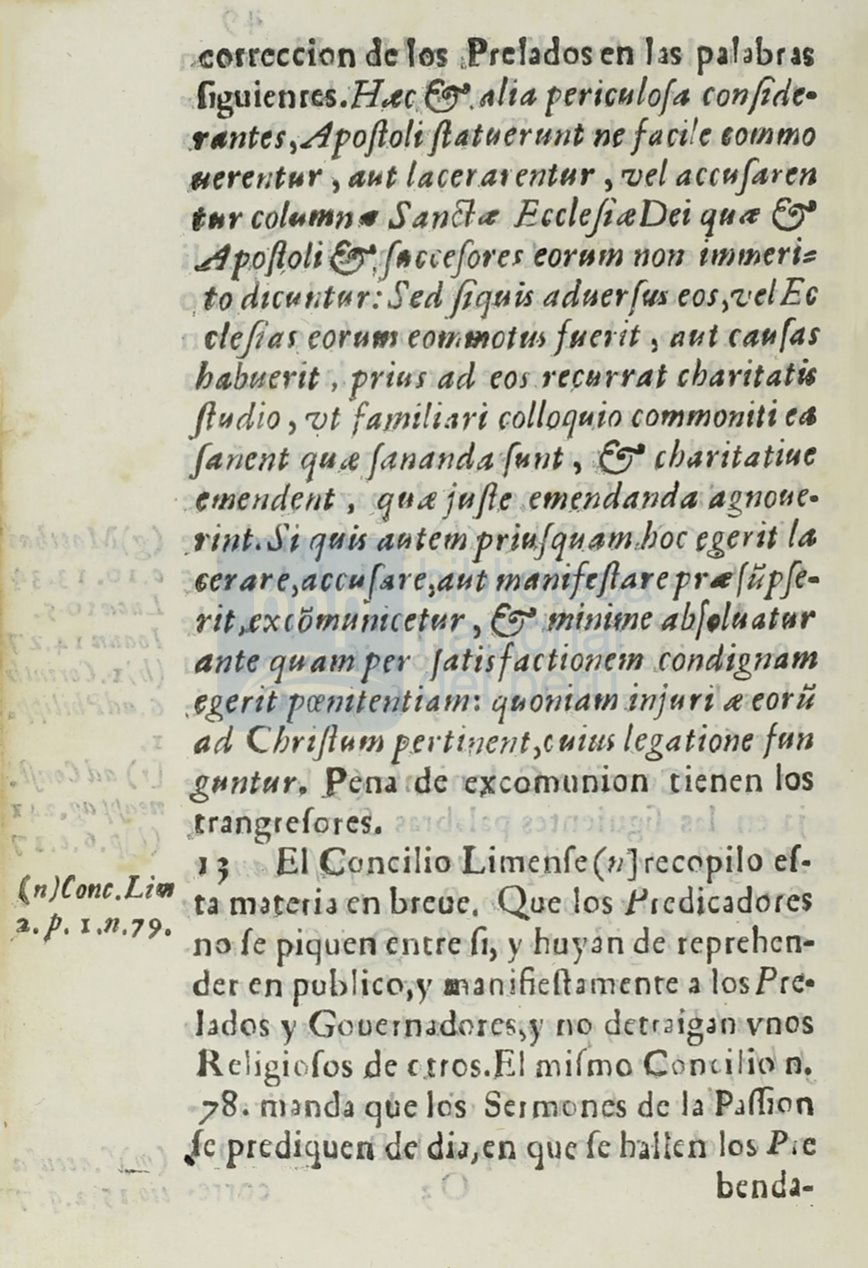 correccion de los Prelados en las palabras
ſiguientes. Hæc & alia periculoſa conſide-
rantes, Apoſtoli ſtatuerunt ne facile commo
uerentur, aut lacerarentur, vel accuſaren
tur columnæ Sanctæ Eccleſiæ Dei quæ &
Apoſtoli & ſucceſores eorum non immeri-
to dicuntur: Sed ſiquis aduerſus eos, vel Ec
cleſias eorum commotus fuerit, aut cauſas
habuerit, prius ad eos recurrat charitatis
ſtudio, vt familiari colloquio commoniti ea
ſanent quæ ſananda ſunt, & charitatiue
emendent, quæ juſte emendanda agnoue-
rint. Si quis autem priuſquam hoc egerit la
cerare, accuſare, aut manifeſtare præſũpſe-
rit, excõmunicetur, & minime abſoluatur
ante quam per ſatisfactionem condignam
egerit pœnitentiam: quoniam injuriæ eorũ
ad Chriſtum pertinent, cuius legatione fun
guntur. Pena de excomunion tienen los
trangreſores.
13 El Concilio Limenſe (n] recopilo eſ-
(n) Conc. Lim
ta materia en breue. Que los Predicadores
2. p. 1. n. 79.
no ſe piquen entre ſi, y huyan de reprehen-
der en publico, y manifieſtamente a los Pre-
lados y Gouernadores, y no detraigan vnos
Religioſos de otros. El miſmo Concilio n.
78. manda que los Sermones de la Paſſion
ſe prediquen de dia, en que ſe hallen los Pre
benda-